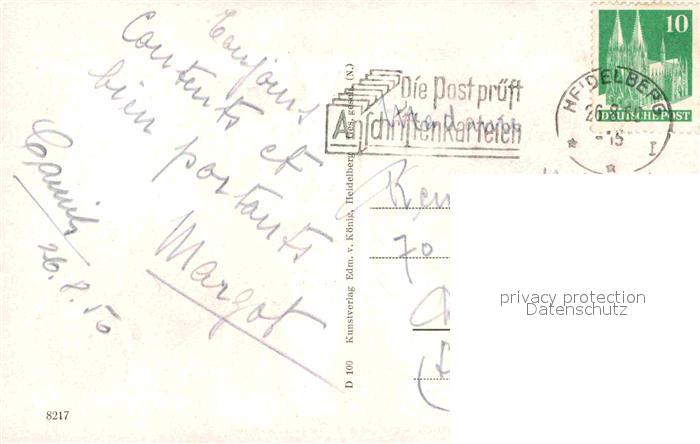 Toujours
Contents et
bien portants
Margot
26.8.50
8217
D 100 Kunstverlag Edm. v. König, Heidelberg
ges. gesch. (N.)
Die Post prüft
Anschriftenkarteien
HEIDELBERG
26.8.50
-15
I
10
DEUTSCHE POST
70
privacy protection
Datenschutz